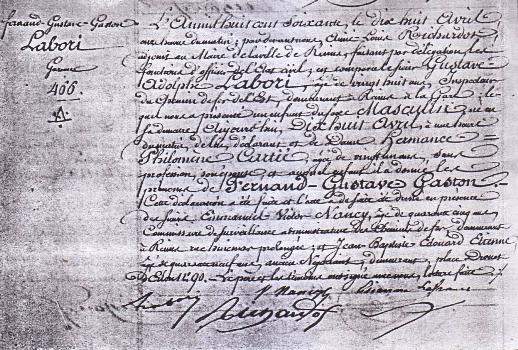 Fernand-Gustave-Gaston
Labori
Garçon
406
A.
L'An mil huit cent soixante, le dix huit Avril
onze heures du matin; par devant nous Anne-Louis Richardot,
adjoint au Maire de la ville de Reims, faisant par délégation, les
fonctions d'officier de l'Etat civil, est comparu le sieur Gustave
Adolphe Labori, âgé de vingt huit ans, Inspecteur
du Chemin de fer de l'Est, demeurant à Reims à la Gare, le
quel nous a présenté un enfant du sexe Masculin, né en
sa demeure Aujourd'hui, Dix huit Avril, à une heure
du matin, de lui, déclarant et de Dame Hermance
Philomène Cartier âgée de vingt un ans, sans
profession, son épouse et auquel enfant il a donné les
prénoms de Fernand-Gustave Gaston.-
Cette déclaration a été faite et l'acte a été de suite dressé en présence
des sieurs Emmanuel Victor Nancy, âgé de quarante cinq ans,
Commissaire de surveillance administrative des Chemins de fer, demeurant
à Reims rue prolongée, et Jean Baptiste Edouard Etienne
âgé de quarante huit ans, ancien Négociant, demeurant, place Drouet
D'Erlon 90. Le père et les témoins ont signé avec nous, lecture faite